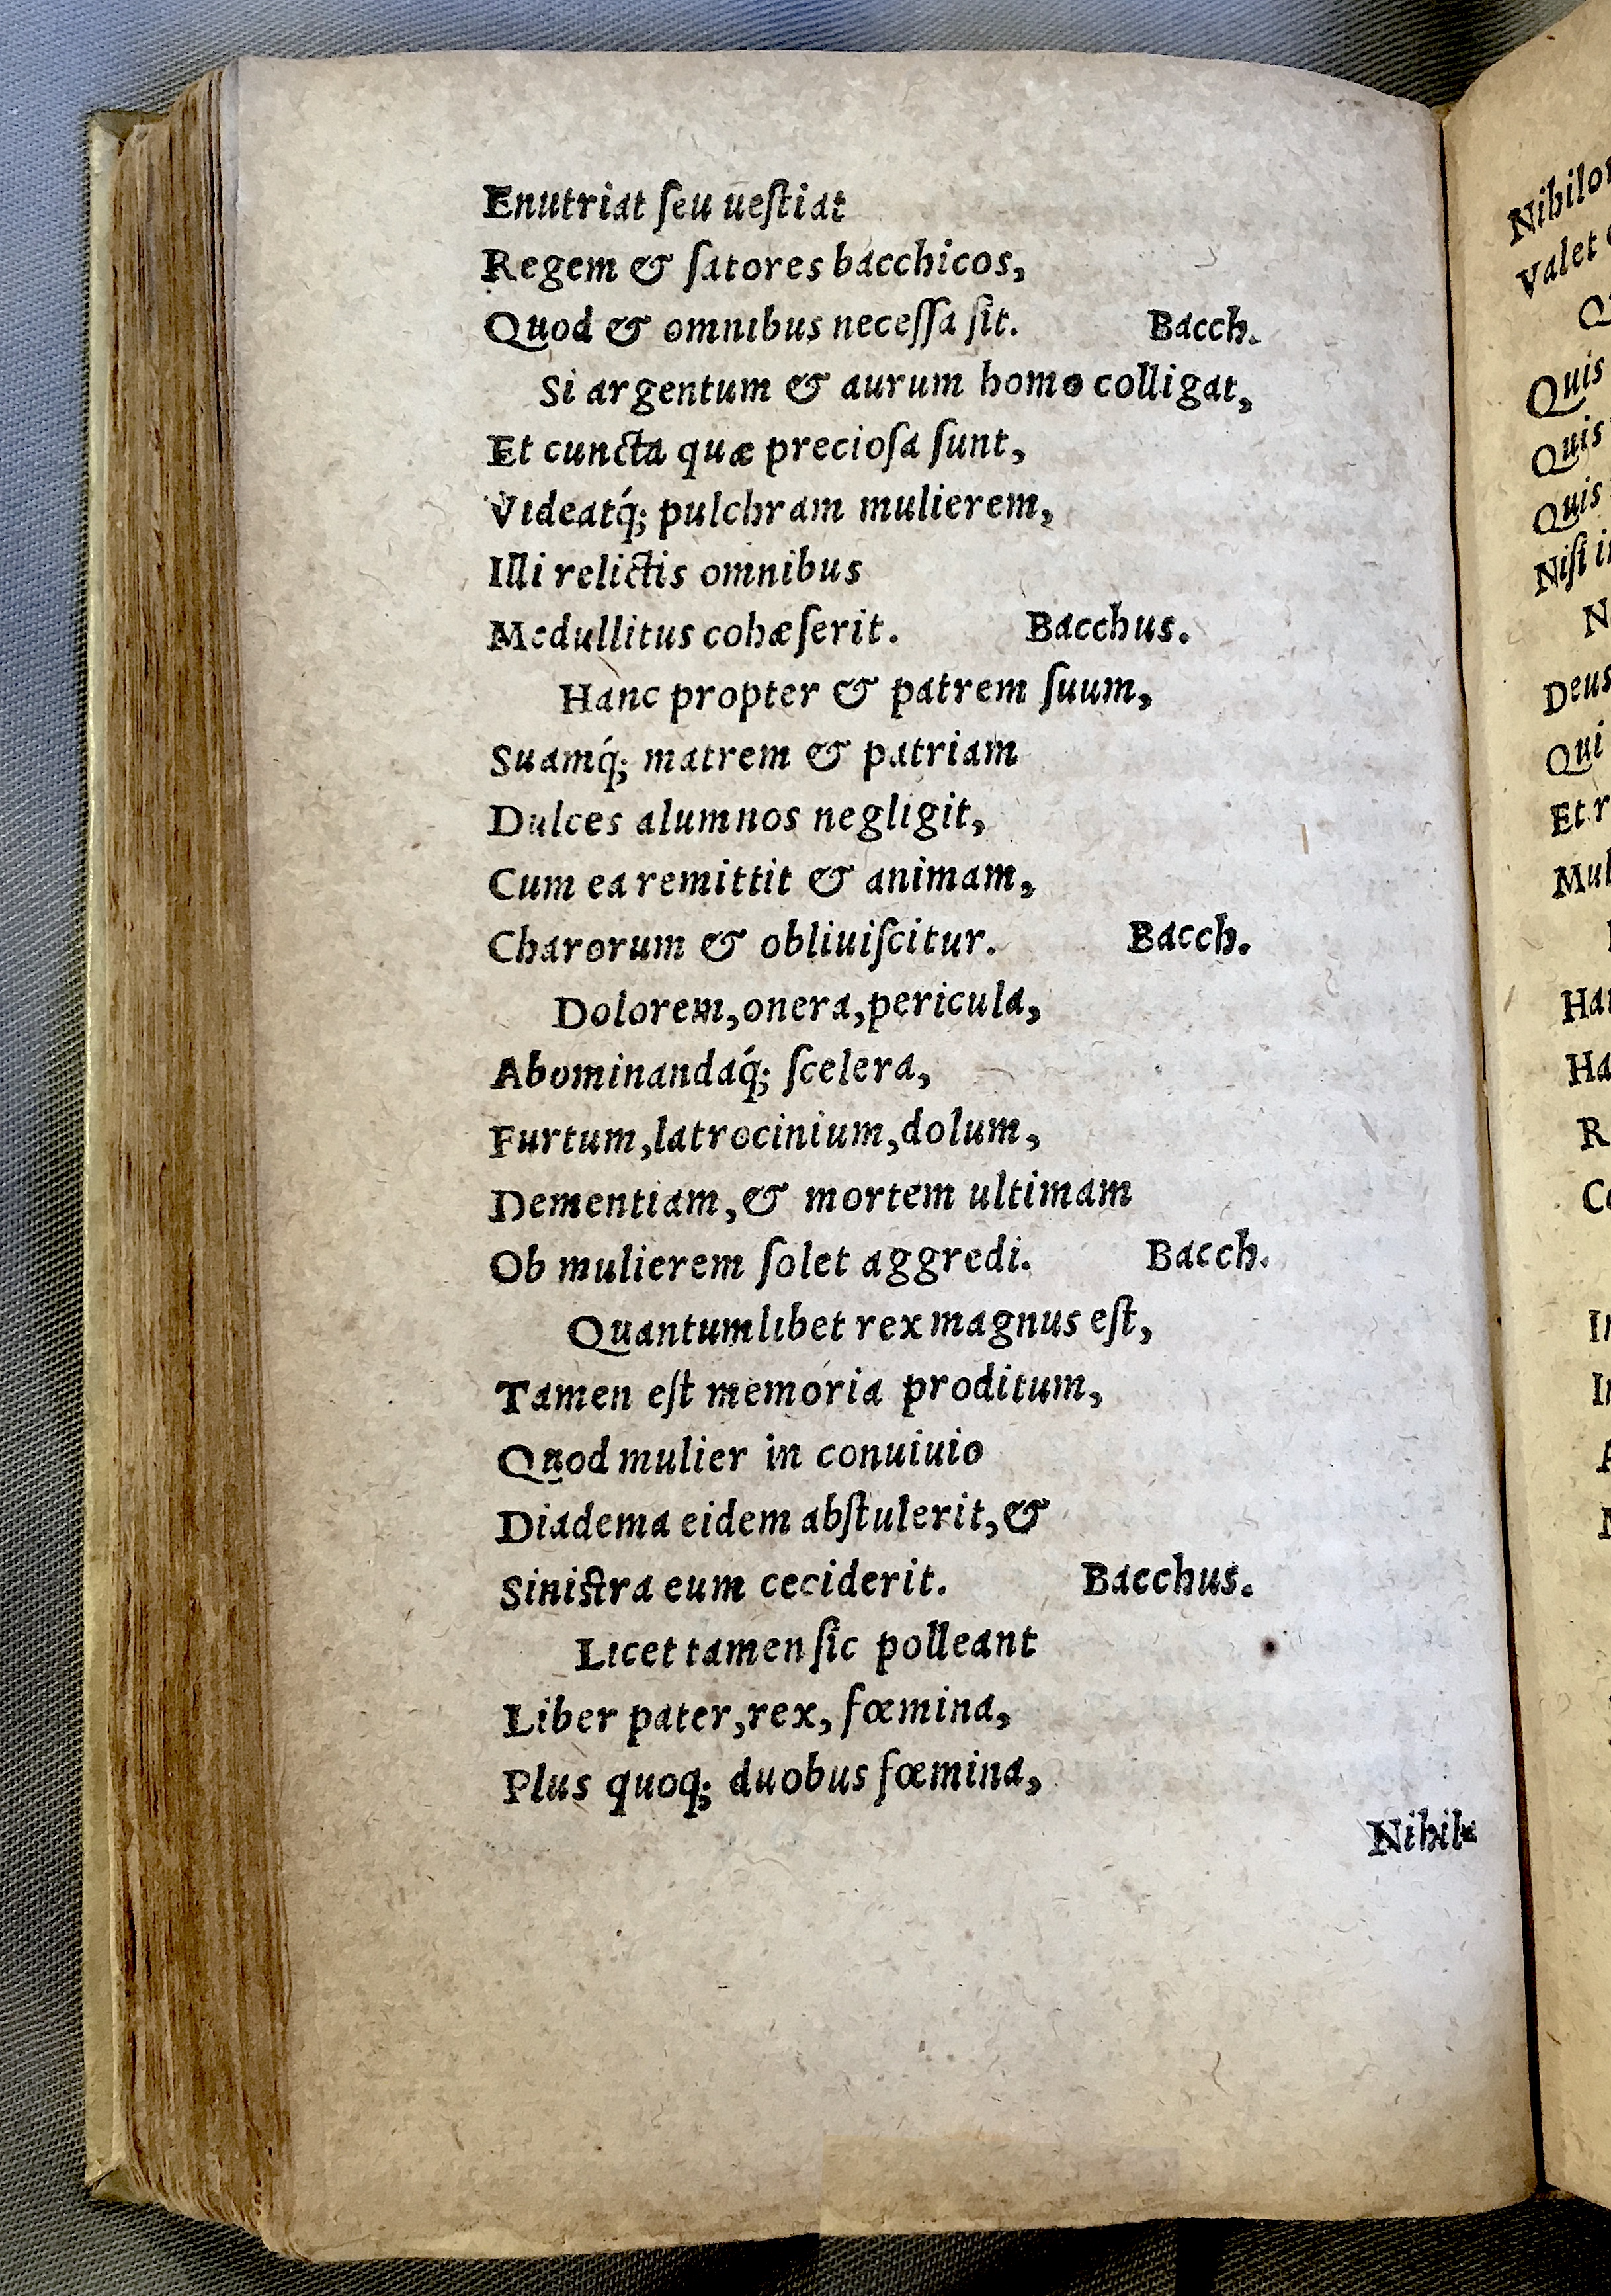 Enutriat ſeu ueſtiat
Regem & ſatores bacchicos,
Quod & omnibus neceſſa ſit. Bacch.
Si argentum & aurum homo colligat,
Et cuncta quæ precioſa ſunt,
Videatq́; pulchram mulierem,
Illi relictis omnibus
Medullitus cohæſerit. Bacchus.
Hanc propter & patrem ſuum,
Suamq́; matrem & patriam
Dulces alumnos negligit,
Cum ea remittit & animam,
Charorum & obliuiſcitur. Bacch.
Dolorem, onera, pericula,
Abominandaq́; ſcelera,
Furtum, latrocinium, dolum,
Dementiam, & mortem ultimam
Ob mulierem ſolet aggredi. Bacch.
Quantumlibet rex magnus eſt,
Tamen eſt memoria proditum,
Quod mulier in conuiuio
Diadema eidem abſtulerit, &
Siniſtra eum ceciderit. Bacchus.
Licet tamen ſic polleant
Liber pater, rex, fœmina,
Plus quoq; duobus fœmina,
Nihil-
Valet
Quis
Quis
Quis
Niſi
Deus
Qui
Et